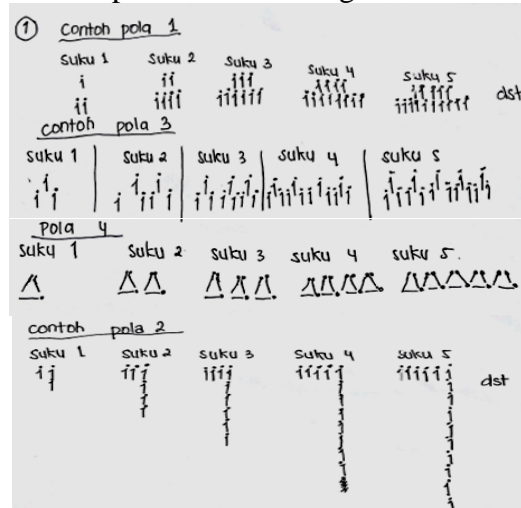 ① Contoh pola 1
Suku 1 Suku 2 Suku 3 Suku 4 Suku 5
dst
contoh pola 3
suku 1 suku 2 suku 3 suku 4 suku 5
pola 4
suku 1 suku 2 suku 3 suku 4 suku 5.
contoh pola 2
suku 1 suku 2 suku 3 suku 4 suku 5
dst